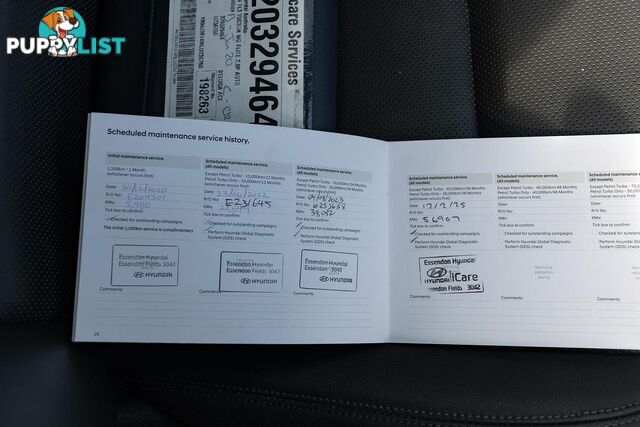 PUPPYLIST
icare Services
20329464
198263
Scheduled maintenance service history.
Initial maintenance service.
1,500km / 1 Month
(whichever occurs first)
Date: 30/12/2020
R/O No: E204307
KMs: 5980
Tick box to confirm:
Checked for outstanding campaigns
The initial 1,500km service is complimentary
Essendon Hyundai
Essendon Fields 3042
HYUNDAI
Comments:
Scheduled maintenance service.
(All models)
Except Petrol Turbo - 15,000km/12 Months
Petrol Turbo Only - 10,000km/12 Months
(whichever occurs first)
R/O No: E231645
KMs:
Tick box to confirm:
Checked for outstanding campaigns
Perform Hyundai Global Diagnostic
System (GDS) check
Essendon Hyundai
Essendon Fields 3042
HYUNDAI
Comments:
Scheduled maintenance service.
(All models)
Except Petrol Turbo - 30,000km/24 Months
Petrol Turbo Only - 20,000km/24 Months
(whichever occurs first)
R/O No:
KMs: 39,042
Tick box to confirm:
Checked for outstanding campaigns
Perform Hyundai Global Diagnostic
System (GDS) check
Essendon Hyundai
Essendon Fields 3042
HYUNDAI
Comments:
Scheduled maintenance service.
(All models)
Except Petrol Turbo - 45,000km/36 Months
Petrol Turbo Only - 30,000km/36 Months
(whichever occurs first)
Date: 12/2/25
R/O No:
KMs: 56907
Tick box to confirm:
Checked for outstanding campaigns
Perform Hyundai Global Diagnostic
System (GDS) check
Essendon Hyundai
HYUNDAI iCare
Essendon Fields 3042
Comments:
Scheduled maintenance service.
(All models)
Except Petrol Turbo - 60,000km/48 Months
Petrol Turbo Only - 40,000km/48 Months
(whichever occurs first)
Date:
R/O No:
KMs:
Tick box to confirm:
Checked for outstanding campaigns
Perform Hyundai Global Diagnostic
System (GDS) check
Servicing
validation
stamp
Comments:
Scheduled maintenance
(All models)
Except Petrol Turbo - 75,0
Petrol Turbo Only - 50,0
(whichever occurs first)
Date:
R/O No:
KMs:
Tick box to confirm:
Checked for outstanding
Perform Hyundai Global
System (GDS) check
Comments: